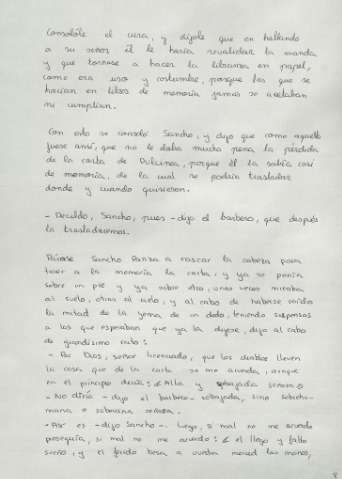 Consolóle el cura, y díjole que en hallando
a su señor él le haría revalidar la manda
y que tornase a hacer la libranza en papel,
como era uso y costumbre, porque las que se
hacían en libros de memoria jamás se acetaban
ni cumplían.
Con esto se consoló Sancho, y dijo que como aquello
fuese ansí, que no le daba mucha pena la pérdida
de la carta de Dulcinea, porque él la sabía casi
de memoria, de la cual se podría trasladar
donde y cuando quisiesen.
- Decildo, Sancho, pues - dijo el barbero, que después
la trasladaremos.
Paróse Sancho Panza a rascar la cabeza para
traer a la memoria la carta, y ya se ponía
sobre un pie y ya sobre otro, unas veces miraba
al suelo, otras al cielo, y al cabo de haberse roído
la mitad de la yema de un dedo, teniendo suspensos
a los que esperaban que ya la dijese, dijo al cabo
de grandísimo rato:
- Por Dios, señor licenciado, que los diablos lleven
la cosa que de la carta se me acuerda, aunque
en el principio decía: Alta y sobajada señora
- No diría - dijo el barbero - sobajada, sino sobrehu-
mana o soberana señora.
- Así es - dijo Sancho -. Luego, si mal no me acuerdo
proseguía, si mal no me acuerdo: el llego y falto
sueño, y el ferido besa a vuestra merced las manos,